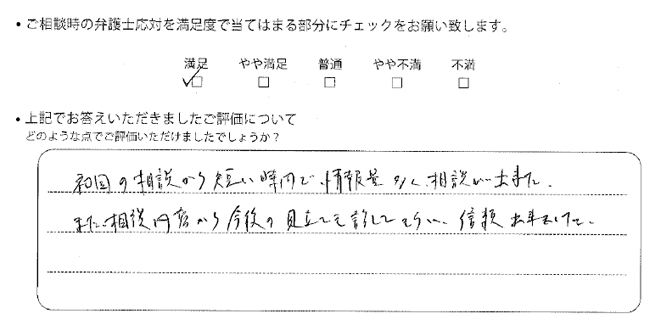 ・ご相談時の弁護士応対を満足度で当てはまる部分にチェックをお願い致します。
満足 やや満足 普通 やや不満 不満
・上記でお答えいただきましたご評価について
どのような点でご評価いただけましたでしょうか？
初回の相談から短い時間で、情報量多く、相談が出来た。
また、相談内容から今後の見立てを話してもらい、信頼出来ました。